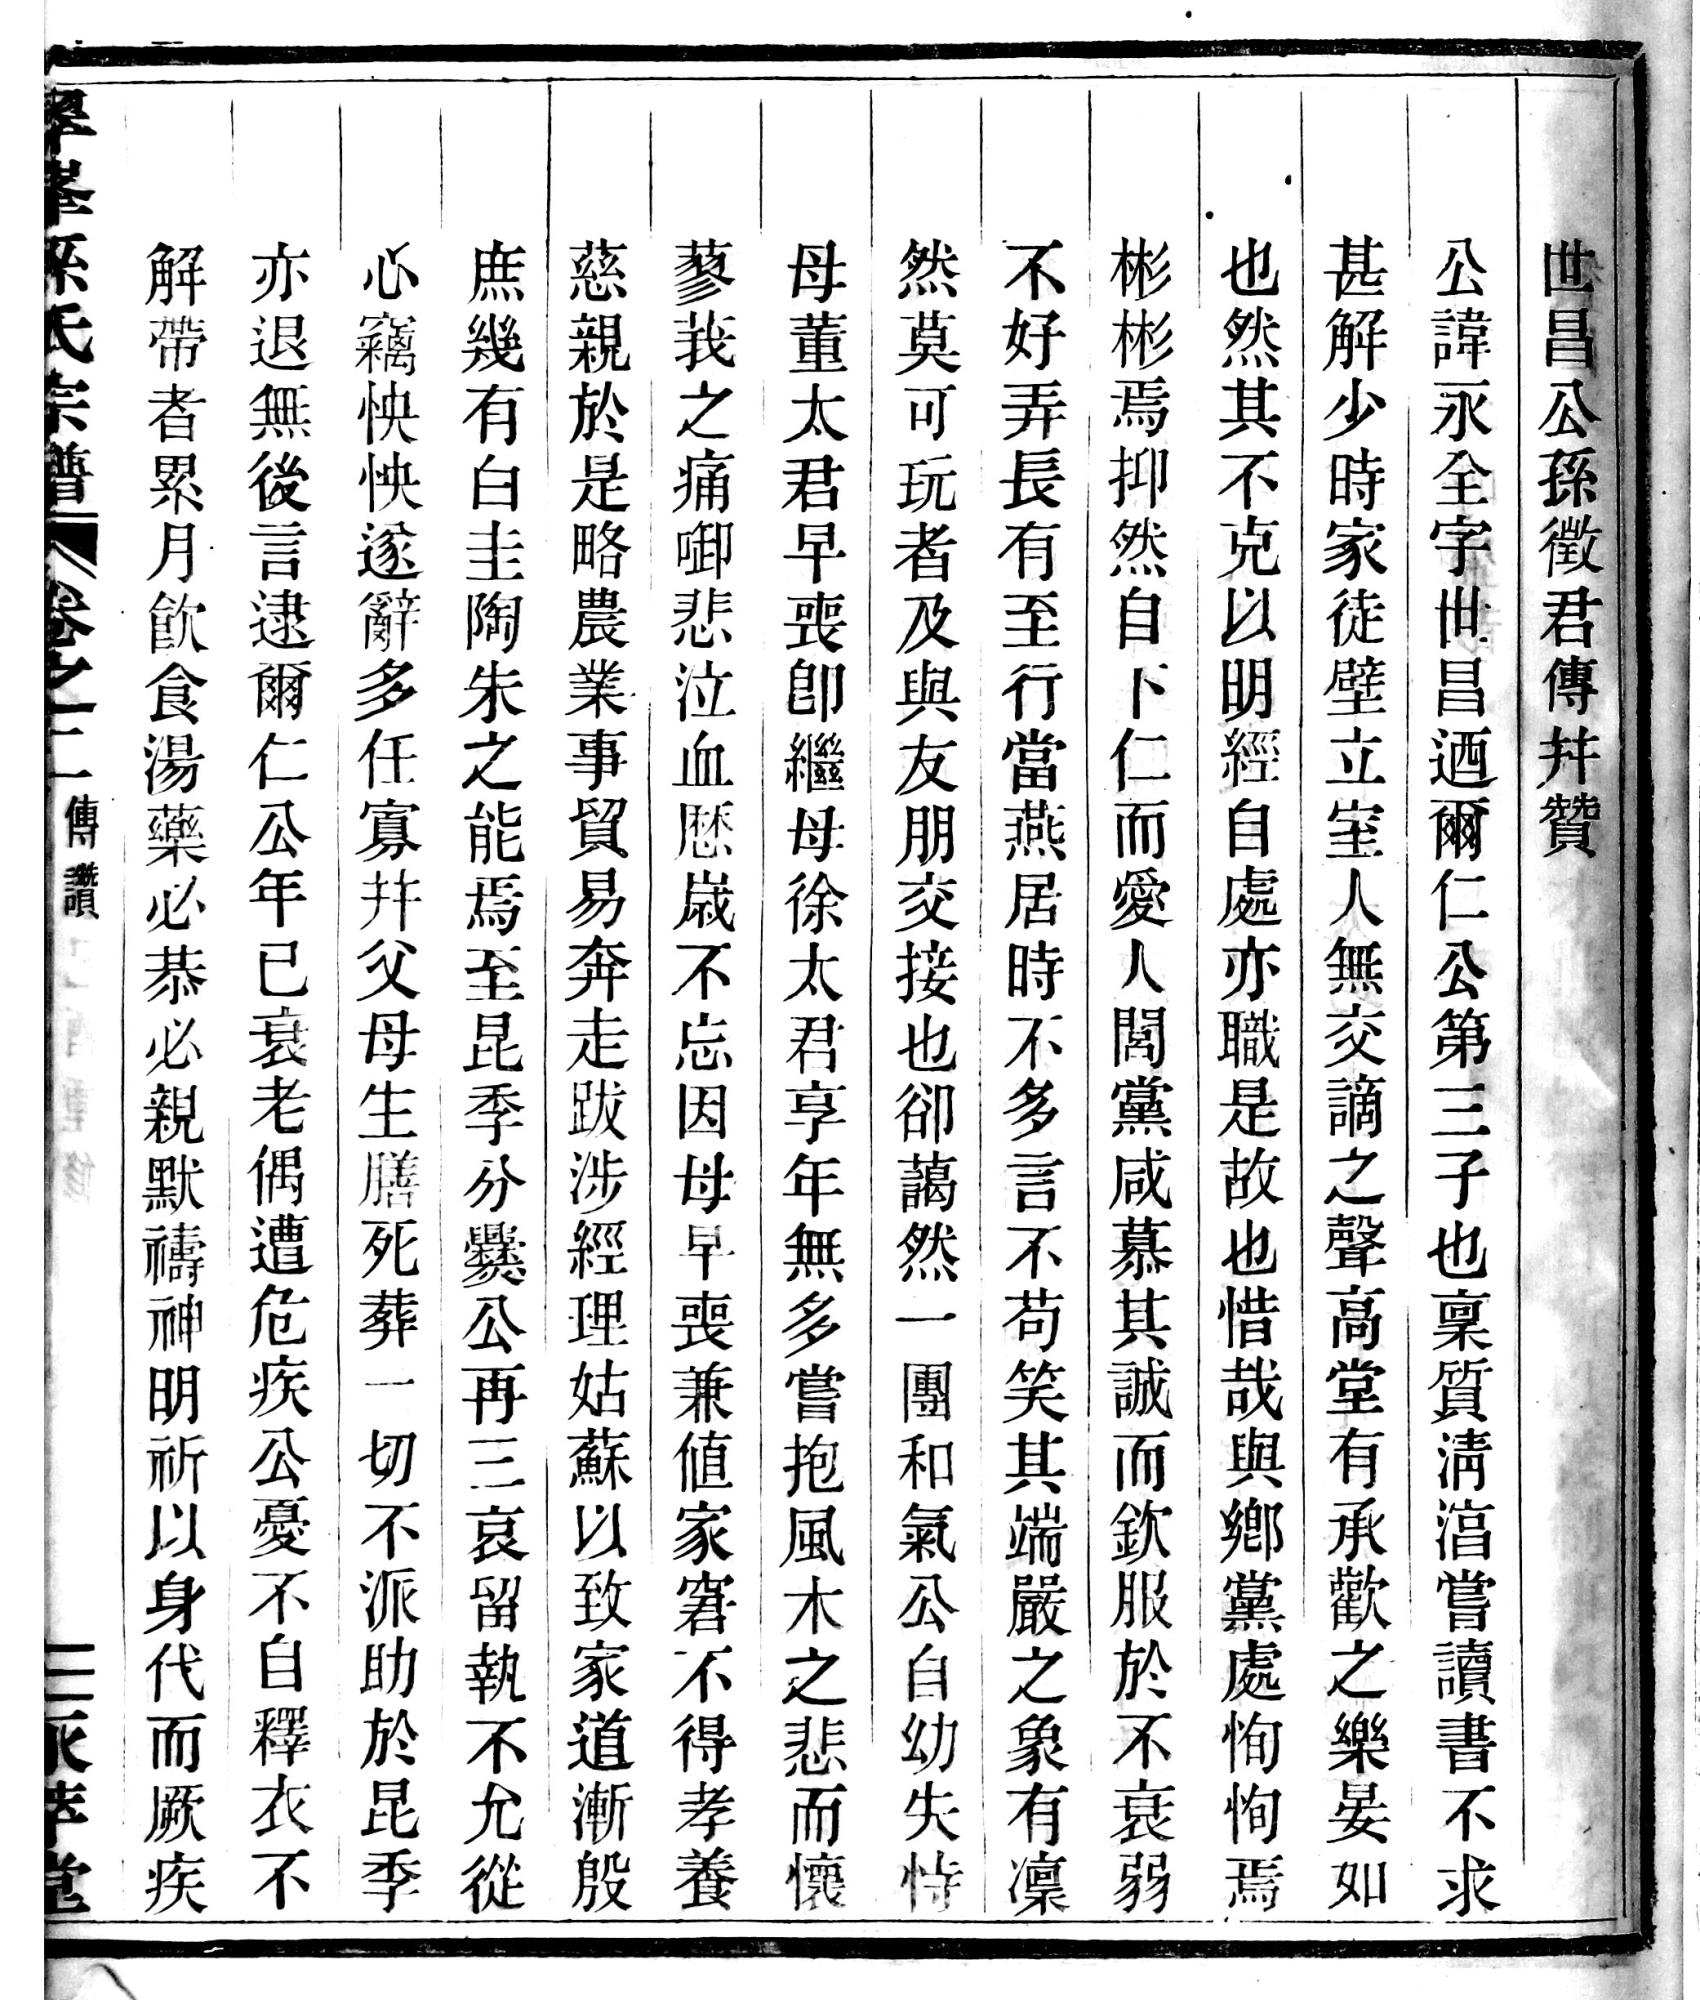 世昌公孫徵君傳幷贊
公諱永全字世昌迺爾仁公第三子也稟質淸㴞嘗讀書不求
甚解少時家徒壁立室人無交謫之聲高堂有承歡之樂晏如
也然其不克以明經自處亦職是故也惜哉與鄉黨處恂恂焉
彬彬焉抑然自卜仁而愛人閭黨咸慕其誠而欽服於不衰弱
不好弄長有至行當燕居時不多言不苟笑其端嚴之象有凜
然莫可玩者及與友朋交接也卻藹然一團和氣公自幼失恃
母董太君早喪卽繼母徐太君享年無多嘗抱風木之悲而懷
蓼莪之痛啣悲泣血歷歲不忘因母早喪兼値家窘不得孝養
慈親於是略農業事貿易奔走跋涉經理姑蘇以致家道漸殷
庶幾有白圭陶朱之能焉至昆季分爨公再三哀留執不允從
心竊怏怏遂辭多任寡幷父母生膳死葬一切不派助於昆季
亦退無後言逮爾仁公年已衰老偶遭危疾公憂不自釋衣不
解帶者累月飮食湯藥必恭必親默禱神明祈以身代而厥疾
孫氏宗譜 卷之二 傳讚 二 永萃堂